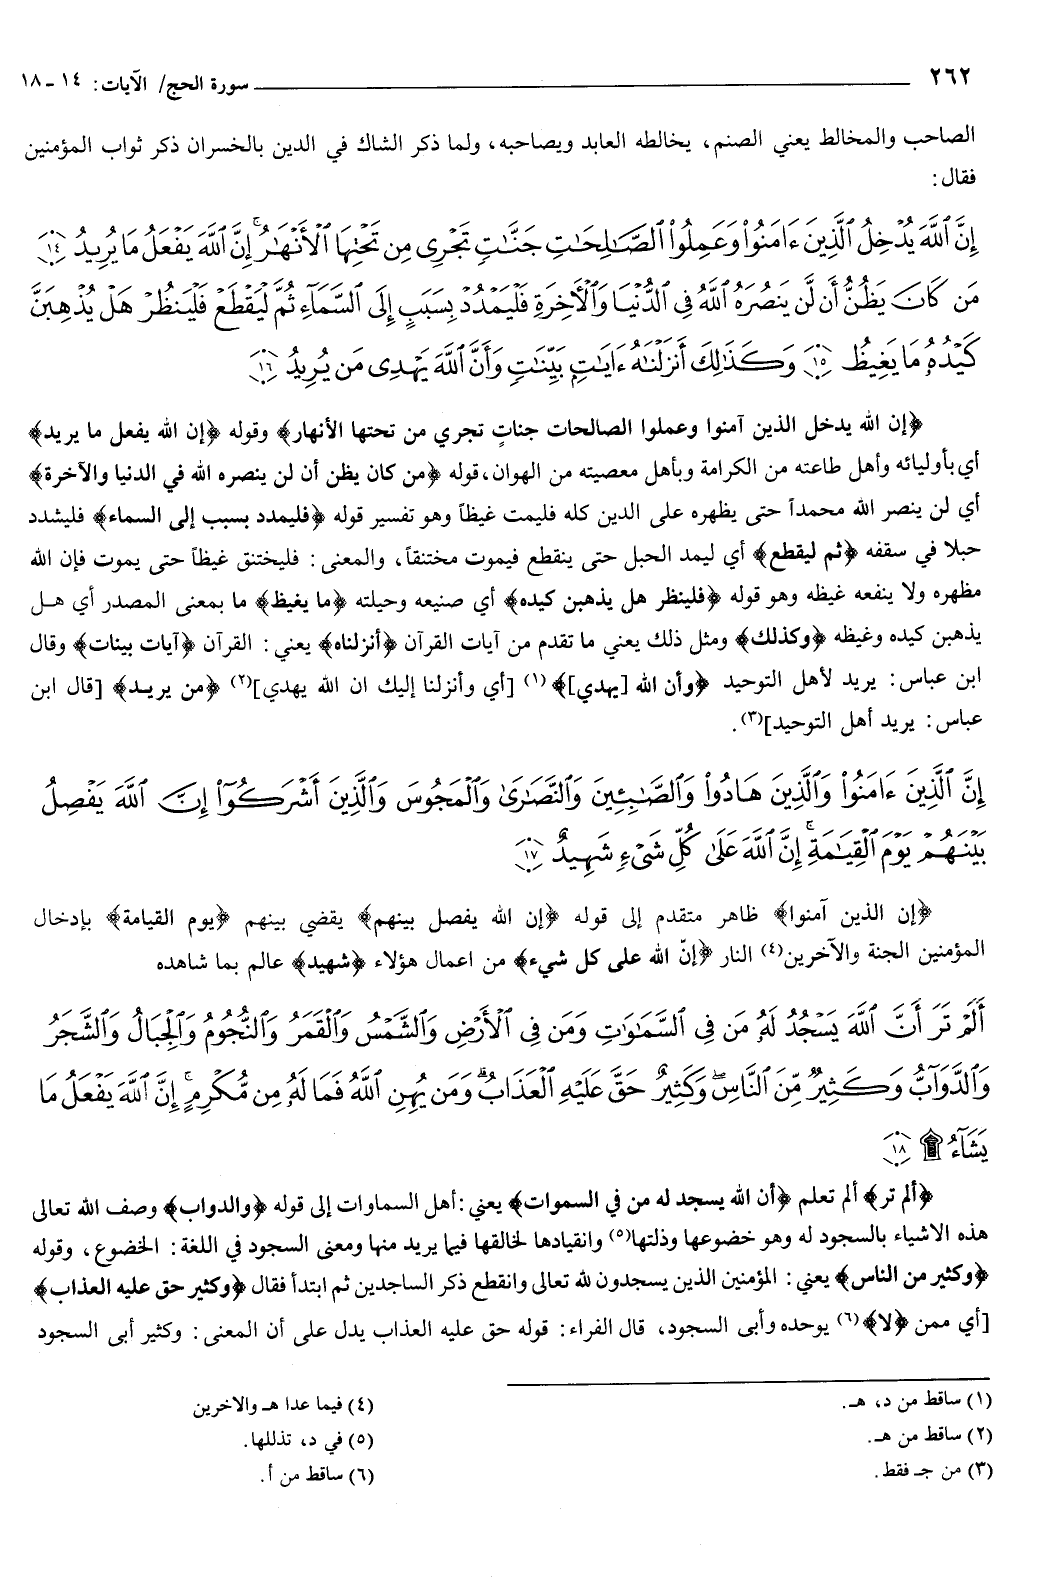 ٢٦٢ سورة الحج/ الآيات: ١٤ - ١٨
الصاحب والمخالط يعني الصنم، يخالطه العابد ويصاحبه، ولما ذكر الشاك في الدين بالخسران ذكر ثواب المؤمنين
فقال:
إِنَّ ٱللَّهَ يُدْخِلُ ٱلَّذِينَ ءَامَنُوا۟ وَعَمِلُوا۟ ٱلصَّـٰلِحَـٰتِ جَنَّـٰتٍ تَجْرِى مِن تَحْتِهَا ٱلْأَنْهَـٰرُ ۚ إِنَّ ٱللَّهَ يَفْعَلُ مَا يُرِيدُ ١٤
مَن كَانَ يَظُنُّ أَن لَّن يَنصُرَهُ ٱللَّهُ فِى ٱلدُّنْيَا وَٱلْـَٔاخِرَةِ فَلْيَمْدُدْ بِسَبَبٍ إِلَى ٱلسَّمَآءِ ثُمَّ لْيَقْطَعْ فَلْيَنظُرْ هَلْ يُذْهِبَنَّ
كَيْدُهُۥ مَا يَغِيظُ ١٥ وَكَذَٰلِكَ أَنزَلْنَـٰهُ ءَايَـٰتٍۭ بَيِّنَـٰتٍ وَأَنَّ ٱللَّهَ يَهْدِى مَن يُرِيدُ ١٦
﴿إن الله يدخل الذين آمنوا وعملوا الصالحات جناتٍ تجري من تحتها الأنهار﴾ وقوله ﴿إن الله يفعل ما يريد﴾
أي بأوليائه وأهل طاعته من الكرامة وبأهل معصيته من الهوان، قوله ﴿من كان يظن أن لن ينصره الله في الدنيا والآخرة﴾
أي لن ينصر الله محمداً حتى يظهره على الدين كله فليمت غيظاً وهو تفسير قوله ﴿فليمدد بسبب إلى السماء﴾ فليشدد
حبلا في سقفه ﴿ثم ليقطع﴾ أي ليمد الحبل حتى ينقطع فيموت مختنقاً، والمعنى: فليختنق غيظاً حتى يموت فإن الله
مظهره ولا ينفعه غيظه وهو قوله ﴿فلينظر هل يذهبن كيده﴾ أي صنيعه وحيلته ﴿ما يغيظ﴾ ما بمعنى المصدر أي هـل
يذهبن كيده وغيظه ﴿وكذلك﴾ ومثل ذلك يعني ما تقدم من آيات القرآن ﴿أنزلناه﴾ يعني: القرآن ﴿آيات بينات﴾ وقال
ابن عباس: يريد لأهل التوحيد ﴿وأن الله [يهدي]﴾(١) [أي وأنزلنا إليك ان الله يهدي](٢) ﴿من يريـد﴾ [قال ابن
عباس: يريد أهل التوحيد](٣).
إِنَّ ٱلَّذِينَ ءَامَنُوا۟ وَٱلَّذِينَ هَادُوا۟ وَٱلصَّـٰبِـِٔينَ وَٱلنَّصَـٰرَىٰ وَٱلْمَجُوسَ وَٱلَّذِينَ أَشْرَكُوٓا۟ إِنَّ ٱللَّهَ يَفْصِلُ
بَيْنَهُمْ يَوْمَ ٱلْقِيَـٰمَةِ ۚ إِنَّ ٱللَّهَ عَلَىٰ كُلِّ شَىْءٍ شَهِيدٌ ١٧
﴿إن الذين آمنوا﴾ ظاهر متقدم إلى قوله ﴿إن الله يفصل بينهم﴾ يقضي بينهم ﴿يوم القيامة﴾ بإدخال
المؤمنين الجنة والآخرين(٤) النار ﴿إنّ الله على كل شيء﴾ من اعمال هؤلاء ﴿شهيد﴾ عالم بما شاهده
أَلَمْ تَرَ أَنَّ ٱللَّهَ يَسْجُدُ لَهُۥ مَن فِى ٱلسَّمَـٰوَٰتِ وَمَن فِى ٱلْأَرْضِ وَٱلشَّمْسُ وَٱلْقَمَرُ وَٱلنُّجُومُ وَٱلْجِبَالُ وَٱلشَّجَرُ
وَٱلدَّوَآبُّ وَكَثِيرٌ مِّنَ ٱلنَّاسِ ۖ وَكَثِيرٌ حَقَّ عَلَيْهِ ٱلْعَذَابُ ۗ وَمَن يُهِنِ ٱللَّهُ فَمَا لَهُۥ مِن مُّكْرِمٍ ۚ إِنَّ ٱللَّهَ يَفْعَلُ مَا
يَشَآءُ ۩ ١٨
﴿ألم تر﴾ ألم تعلم ﴿أن الله يسجد له من في السموات﴾ يعني: أهل السماوات إلى قوله ﴿والدواب﴾ وصف الله تعالى
هذه الاشياء بالسجود له وهو خضوعها وذلتها(٥) وانقيادها لخالقها فيما يريد منها ومعنى السجود في اللغة: الخضوع، وقوله
﴿وكثير من الناس﴾ يعني: المؤمنين الذين يسجدون لله تعالى وانقطع ذكر الساجدين ثم ابتدأ فقال ﴿وكثير حق عليه العذاب﴾
[أي ممن ﴿لا﴾(٦) يوحده وأبى السجود، قال الفراء: قوله حق عليه العذاب يدل على أن المعنى: وكثير أبى السجود
(١) ساقط من د، هـ.
(٢) ساقط من هـ.
(٣) من جـ فقط.
(٤) فيما عدا هـ والاخرين
(٥) في د، تذللها.
(٦) ساقط من أ.